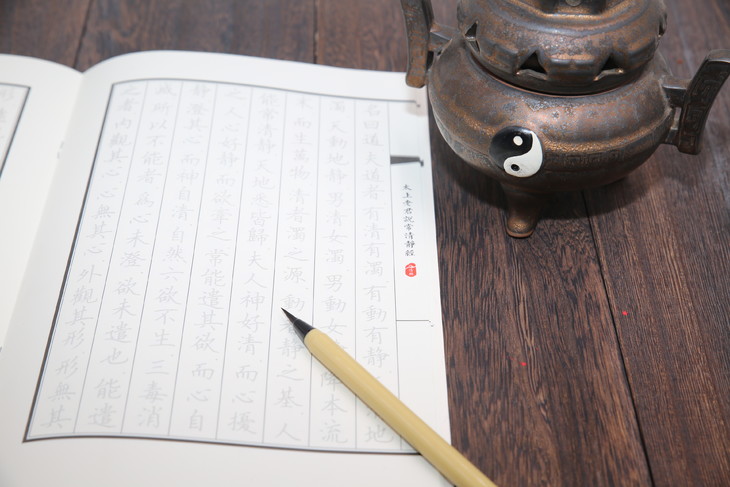 太上老君說常清靜經
名曰道夫道者有清有濁有動有靜地
濁天動地靜男清女濁男動女降本流
末而生萬物清者濁之源動靜之基人
能常清靜天地悉皆歸夫人神好清而心擾
之人心好靜而欲牽之常能遣其欲而心自
靜澄其心而神自清自然六欲不生三毒消
滅所以不能者為心未澄欲未遣也能遣
之者內觀其心心無其心外觀其形形無其